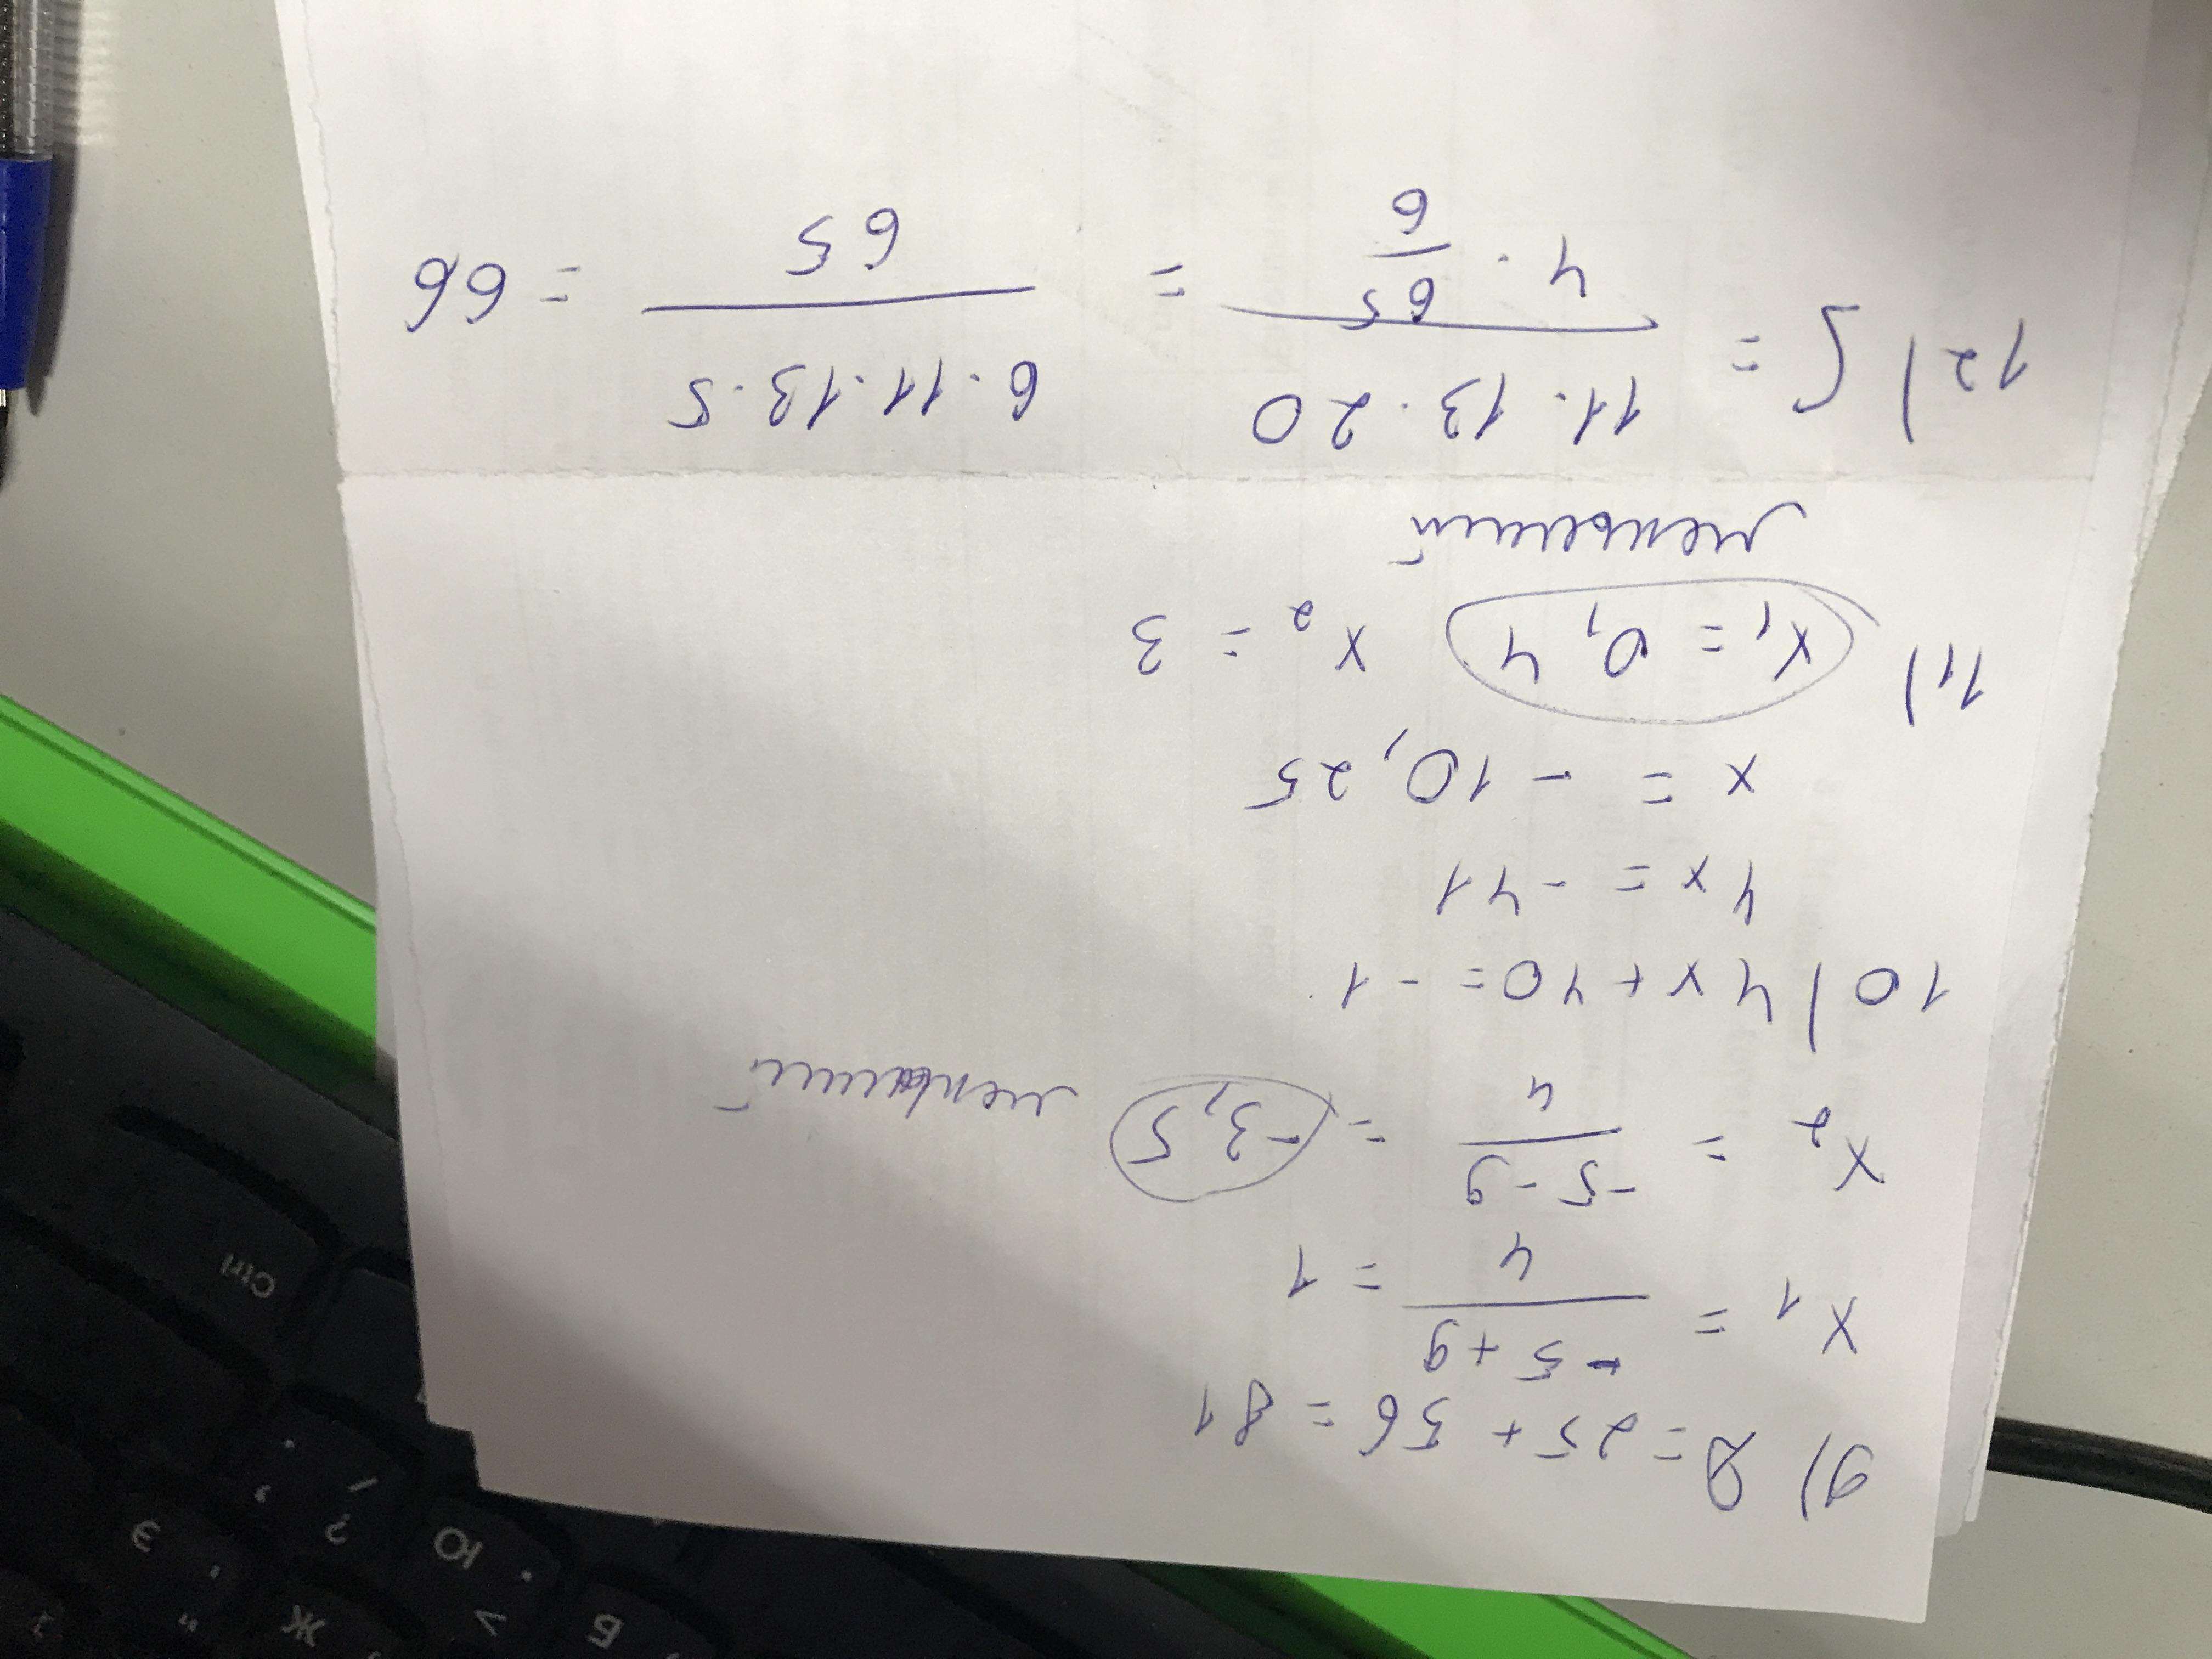 9) D = 25 + 56 = 81
x₁ = (-5+9)/4 = 1
x₂ = (-5-9)/4 = -3,5 меньший
10) 4x + 40 = -1
4x = -41
x = -10,25
11) x₁ = 0,4 x₂ = 3
меньший
12) S = (11·13·20)/(4·65/6) = (6·11·13·5)/65 = 66
Ctrl
Б
Ю
Ж
Э
< ,
> .
? /
" '